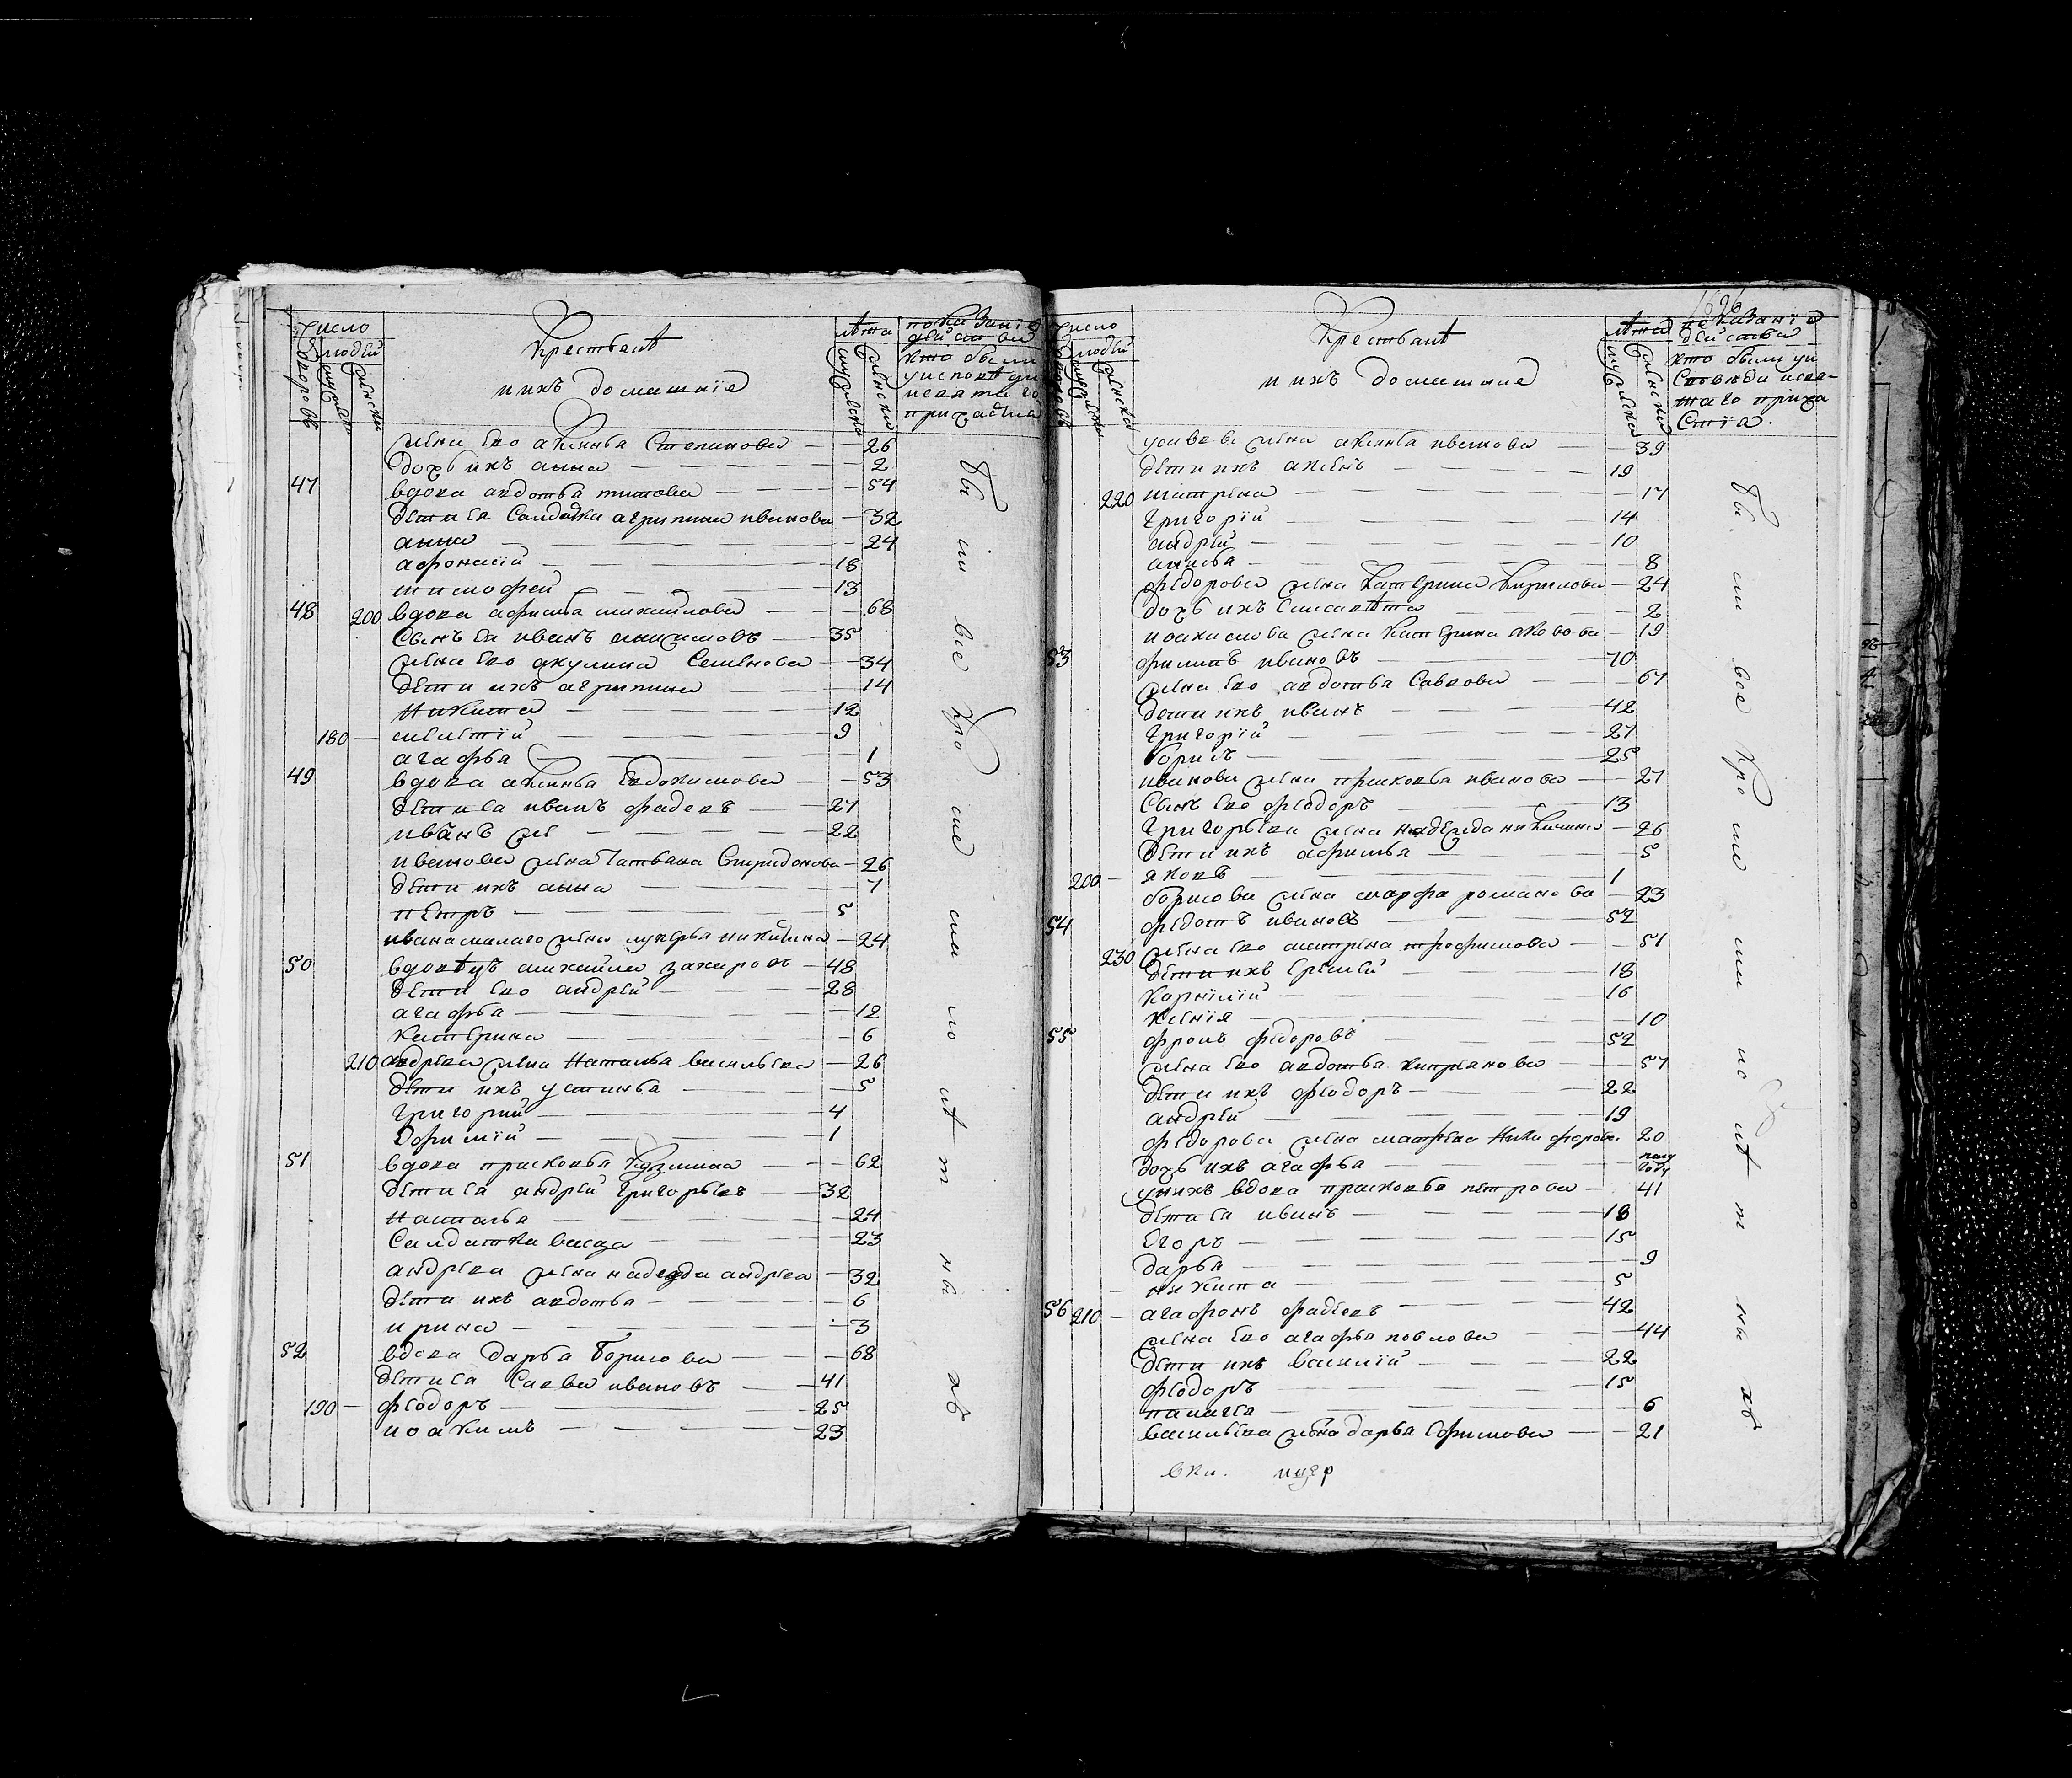 число
людей
дворовъ
мужеска
женска
Крестьянѣ
и ихъ домашніе
лѣта
мужеска
женска
показаніе
действа
кто были
у исповѣди
и святаго
причастия
жена ево аксинья Степанова — 26
дочь ихъ анна — 2
47 вдова авдотья титова — 54
дети ея Салдатка агрипина иванова — 32
анна — 24
афонасій — 18
тимофей — 13
48 200 вдова афимья михайлова — 68
Сынъ ея иванъ анисимовъ — 35
жена ево акулина Семенова — 34
дети ихъ агрипина — 14
Никита — 12
180 — мелетій — 9
агафья — 1
49 вдова аксинья Евдокимова — 53
дети ея иванъ фадеевъ — 27
иванъ же — 22
иванова жена татьяна Спиридонова — 26
дети ихъ анна — 7
петръ — 5
ивана малаго жена лукерья никитина — 24
50 вдовецъ михайла захаровъ — 48
дети ево андрей — 28
агафья — 12
катерина — 6
210 андреева жена Наталья васильева — 26
дети ихъ устинья — 5
григорий — 4
Ефимій — 1
51 вдова прасковья Кузмина — 62
дети ея андрей григорьевъ — 32
Наталья — 24
Салдатка васса — 23
андреева жена надежда андреева — 32
дети ихъ авдотья — 6
ирина — 3
52 вдова дарья Борисова — 68
дети ея Савва ивановъ — 41
190 — феодоръ — 25
иоакимъ — 23
бы ли все ҳ про ше ли ис

число
людей
мужеска
женска
Крестьянѣ
и ихъ домашние
лѣта
мужеска
женска
показаніе
действа
кто были у и
Споведи и свя-
таго прича
Стія.
у саввы жена аксинья иванова — 39
дети ихъ — 19
220 матрена — 17
Григорій — 14
андрей — 10
анисья — 8
федорова жена Катерина Кирилова — 24
дочь ихъ Елисавѣта — 2
иоакимова жена катерина яковова — 19
53 филипъ ивановъ — 70
жена ево авдотья Саввова — 67
дети ихъ иванъ — 42
Григорій — 27
борисъ — 25
иванова жена прасковья иванова — 27
Сынъ ево феодоръ — 13
Григорьева жена надежда никитина — 26
дети ихъ афимья — 5
200 — яковъ — 1
борисова жена марфа романова — 23
54 федотъ ивановъ — 52
230 жена ево матрена трофимова — 51
дети ихъ Еремей — 18
Корнілій — 16
ксенія — 10
55 фролъ федоровъ — 52
жена ево авдотья киприянова — 57
дети ихъ феодоръ — 22
андрей — 19
федорова жена матрена Никифорова 20
дочь ихъ агафья — полу году
у нихъ вдова прасковья петрова — 41
дети ея иванъ — 18
Егоръ — 15
дарья — 9
никита — 5
56 210 — агафонъ фадеевъ — 42
жена ево агафья павлова — 44
дети ихъ василій — 22
феодоръ — 15
палагея — 6
васильева жена дарья Ефимова — 21